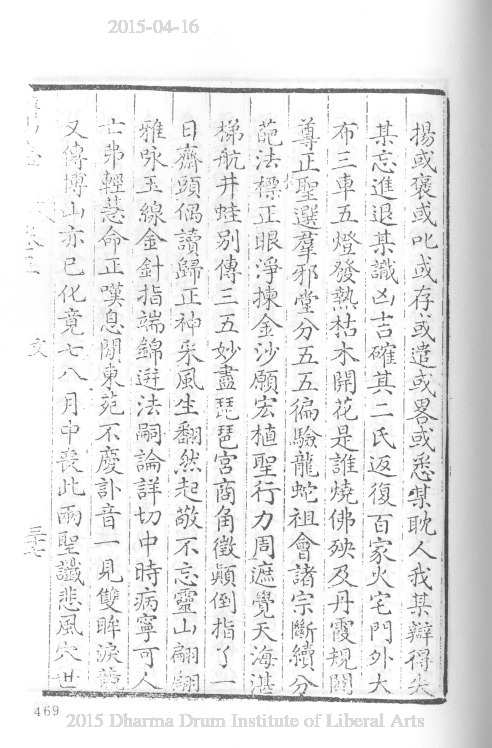 2015-04-16
揚或褒或叱或存或遣或畧或悉某耽人我某辯得失
某忘進退某識凶吉確其二氏返復百家火宅門外大
布三車五燈發熱枯木開花是誰燒佛殃及丹霞規關
尊正聖選羣邪堂分五五徧驗龍蛇祖會諸宗斷續分
葩法標正眼淨揀金沙願宏植聖行力周遮覺天海湛
梯航井蛙別傳三五妙盡琵琶宮商角徵顛倒指了一
日齋頭偶讀歸正神采風生翻然起敬不忘靈山翩翩
雅咏玉線金針指端錦迸法嗣論詳切中時病寧可人
亡弗輕慧命正嘆息間東苑不慶訃音一見雙眸淚競
又傳博山亦已化竟七八月中喪此兩聖讖悲風穴世
三七
469
2015 Dharma Drum Institute of Liberal Arts